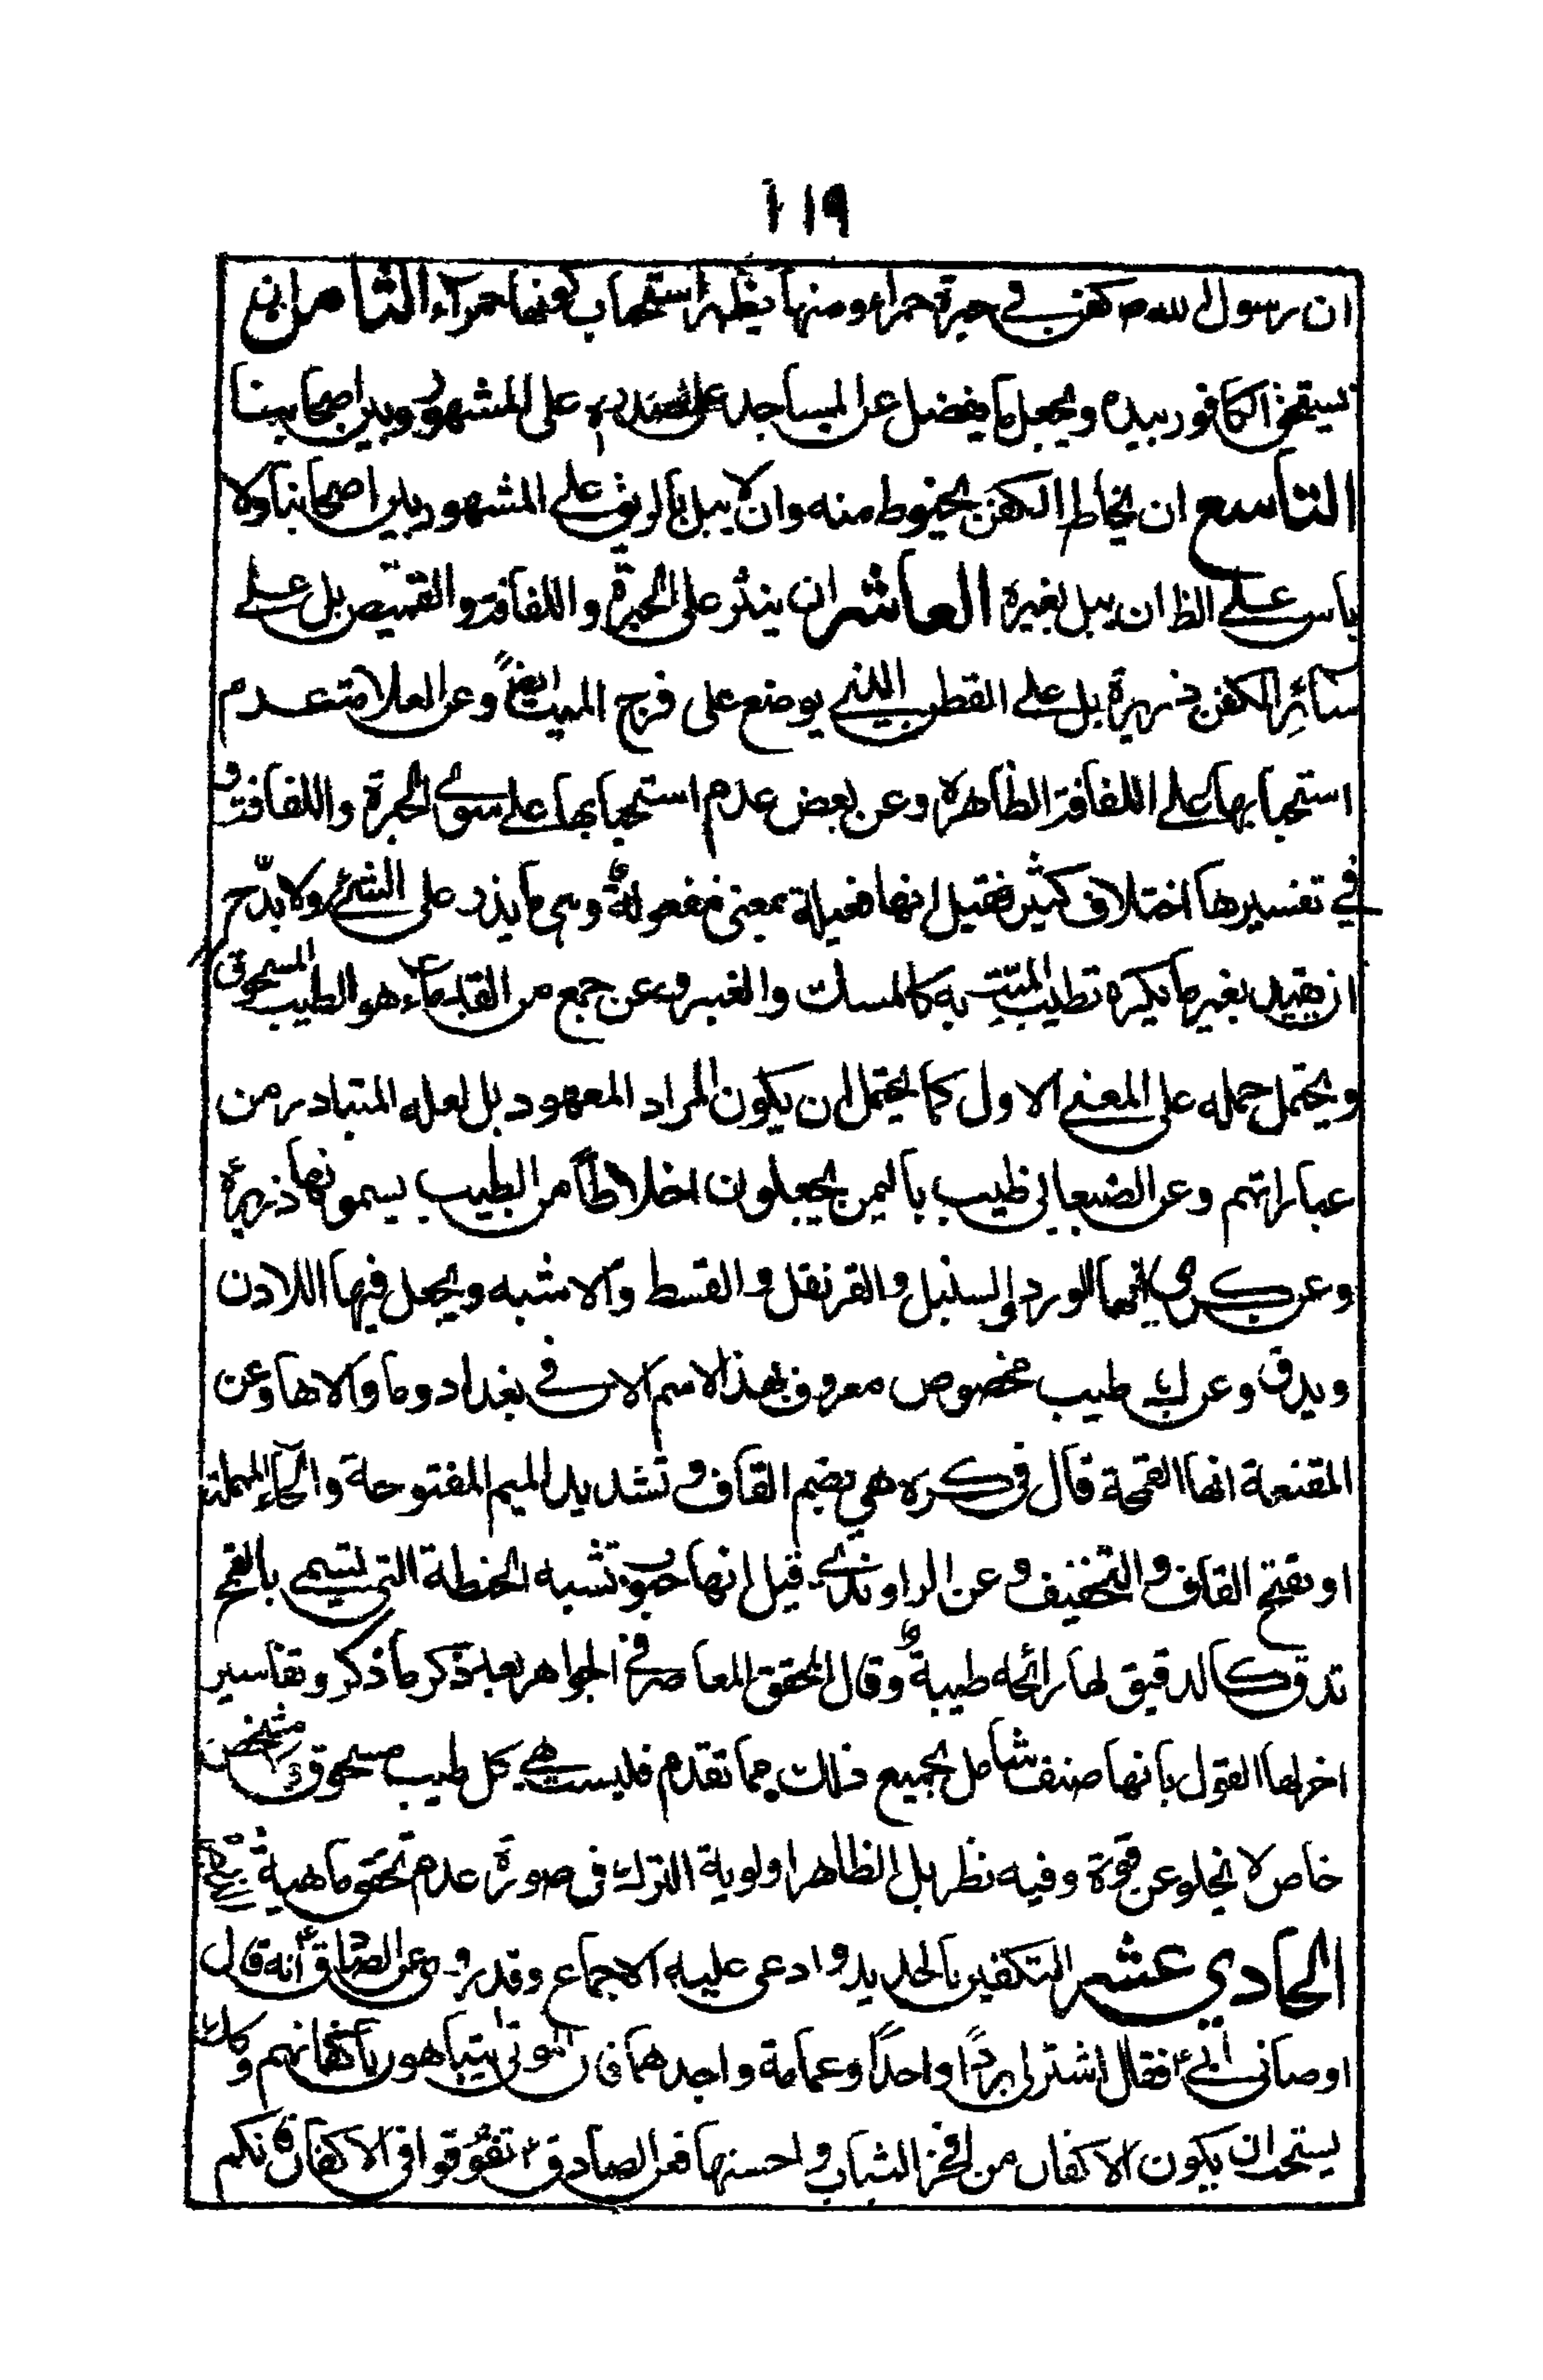 ١١٩
ان رسول الله ص كفن في حبرة حمراء ومنها يظهر استحباب كونها حمراء الثامن ان
يسحق الكافور بيده ويجعل ما يفضل عن المساجد على صدره على المشهور وبين اصحابنا
التاسع ان يخاط الكفن بخيوط منه وان لا يبل بالريق على المشهور بين اصحابنا ولا
باس على الظ ان يبل بغيره العاشر ان ينثر على الحبرة واللفافة والقميص بل على
سائر الكفن ذريرة بل على القطن الذي يوضع على فرج الميت ايضاً وعن العلامة عدم
استحبابها على اللفافة الظاهرة وعن بعض عدم استحبابها على سوى الحبرة واللفافة و
في تفسيرها اختلاف كثير فقيل انها فعيلة بمعنى مفعولة وهي ما يذر على الشئ ولا بد ح
ان يقيد بغير ما يكره تطييب الميت به كالمسك والعنبر وعن جمع من القدماء هو الطيب المسحوق
ويحتمل حمله على المعنى الاول كما يحتمل ان يكون المراد المعهود بل لعله المتبادر من
عباراتهم وعن الصنعاني طيب باليمن يجعلون اخلاطاً من الطيب يسمونها ذريرة
وعن كرى انها الورد والسنبل والقرنقل والقسط والاشبه ويجعل فيها اللادن
ويدق وعن طيب مخصوص معروف بهذا الاسم الان في بغداد وما والاها وعن
المقنعة انها القمحة قال في كره هي بضم القاف وتشديد الميم المفتوحة والحاء المهملة
او بفتح القاف والتخفيف وعن الراوندي قيل انها حبوب تشبه الحنطة التي تسمى بالقمح
تدق كالدقيق لها رائحه طيبة وقال المحقق المعاصر في الجواهر بعد ذكر ما ذكر وتفاسير
اخر لها القول بانها صنف شامل لجميع ذلك مما تقدم فليست هي كل طيب مسحوق ولا شخص
خاص لا يخلو عن قوة وفيه نظر بل الظاهر اولوية الترك في صورة عدم تحقق ماهية
الحادي عشر التكفين بالجديد وادعى عليه الاجماع وقد روي عن الصادق ع انه قال
اوصاني ابي فقال اشتر لي برداً واحداً وعمامة واجدهما فان الموتى يتباهون باكفانهم وكذا
يستحب ان يكون الاكفان من افخر الثياب واحسنها فعن الصادق ع تنوقوا في الاكفان فانكم